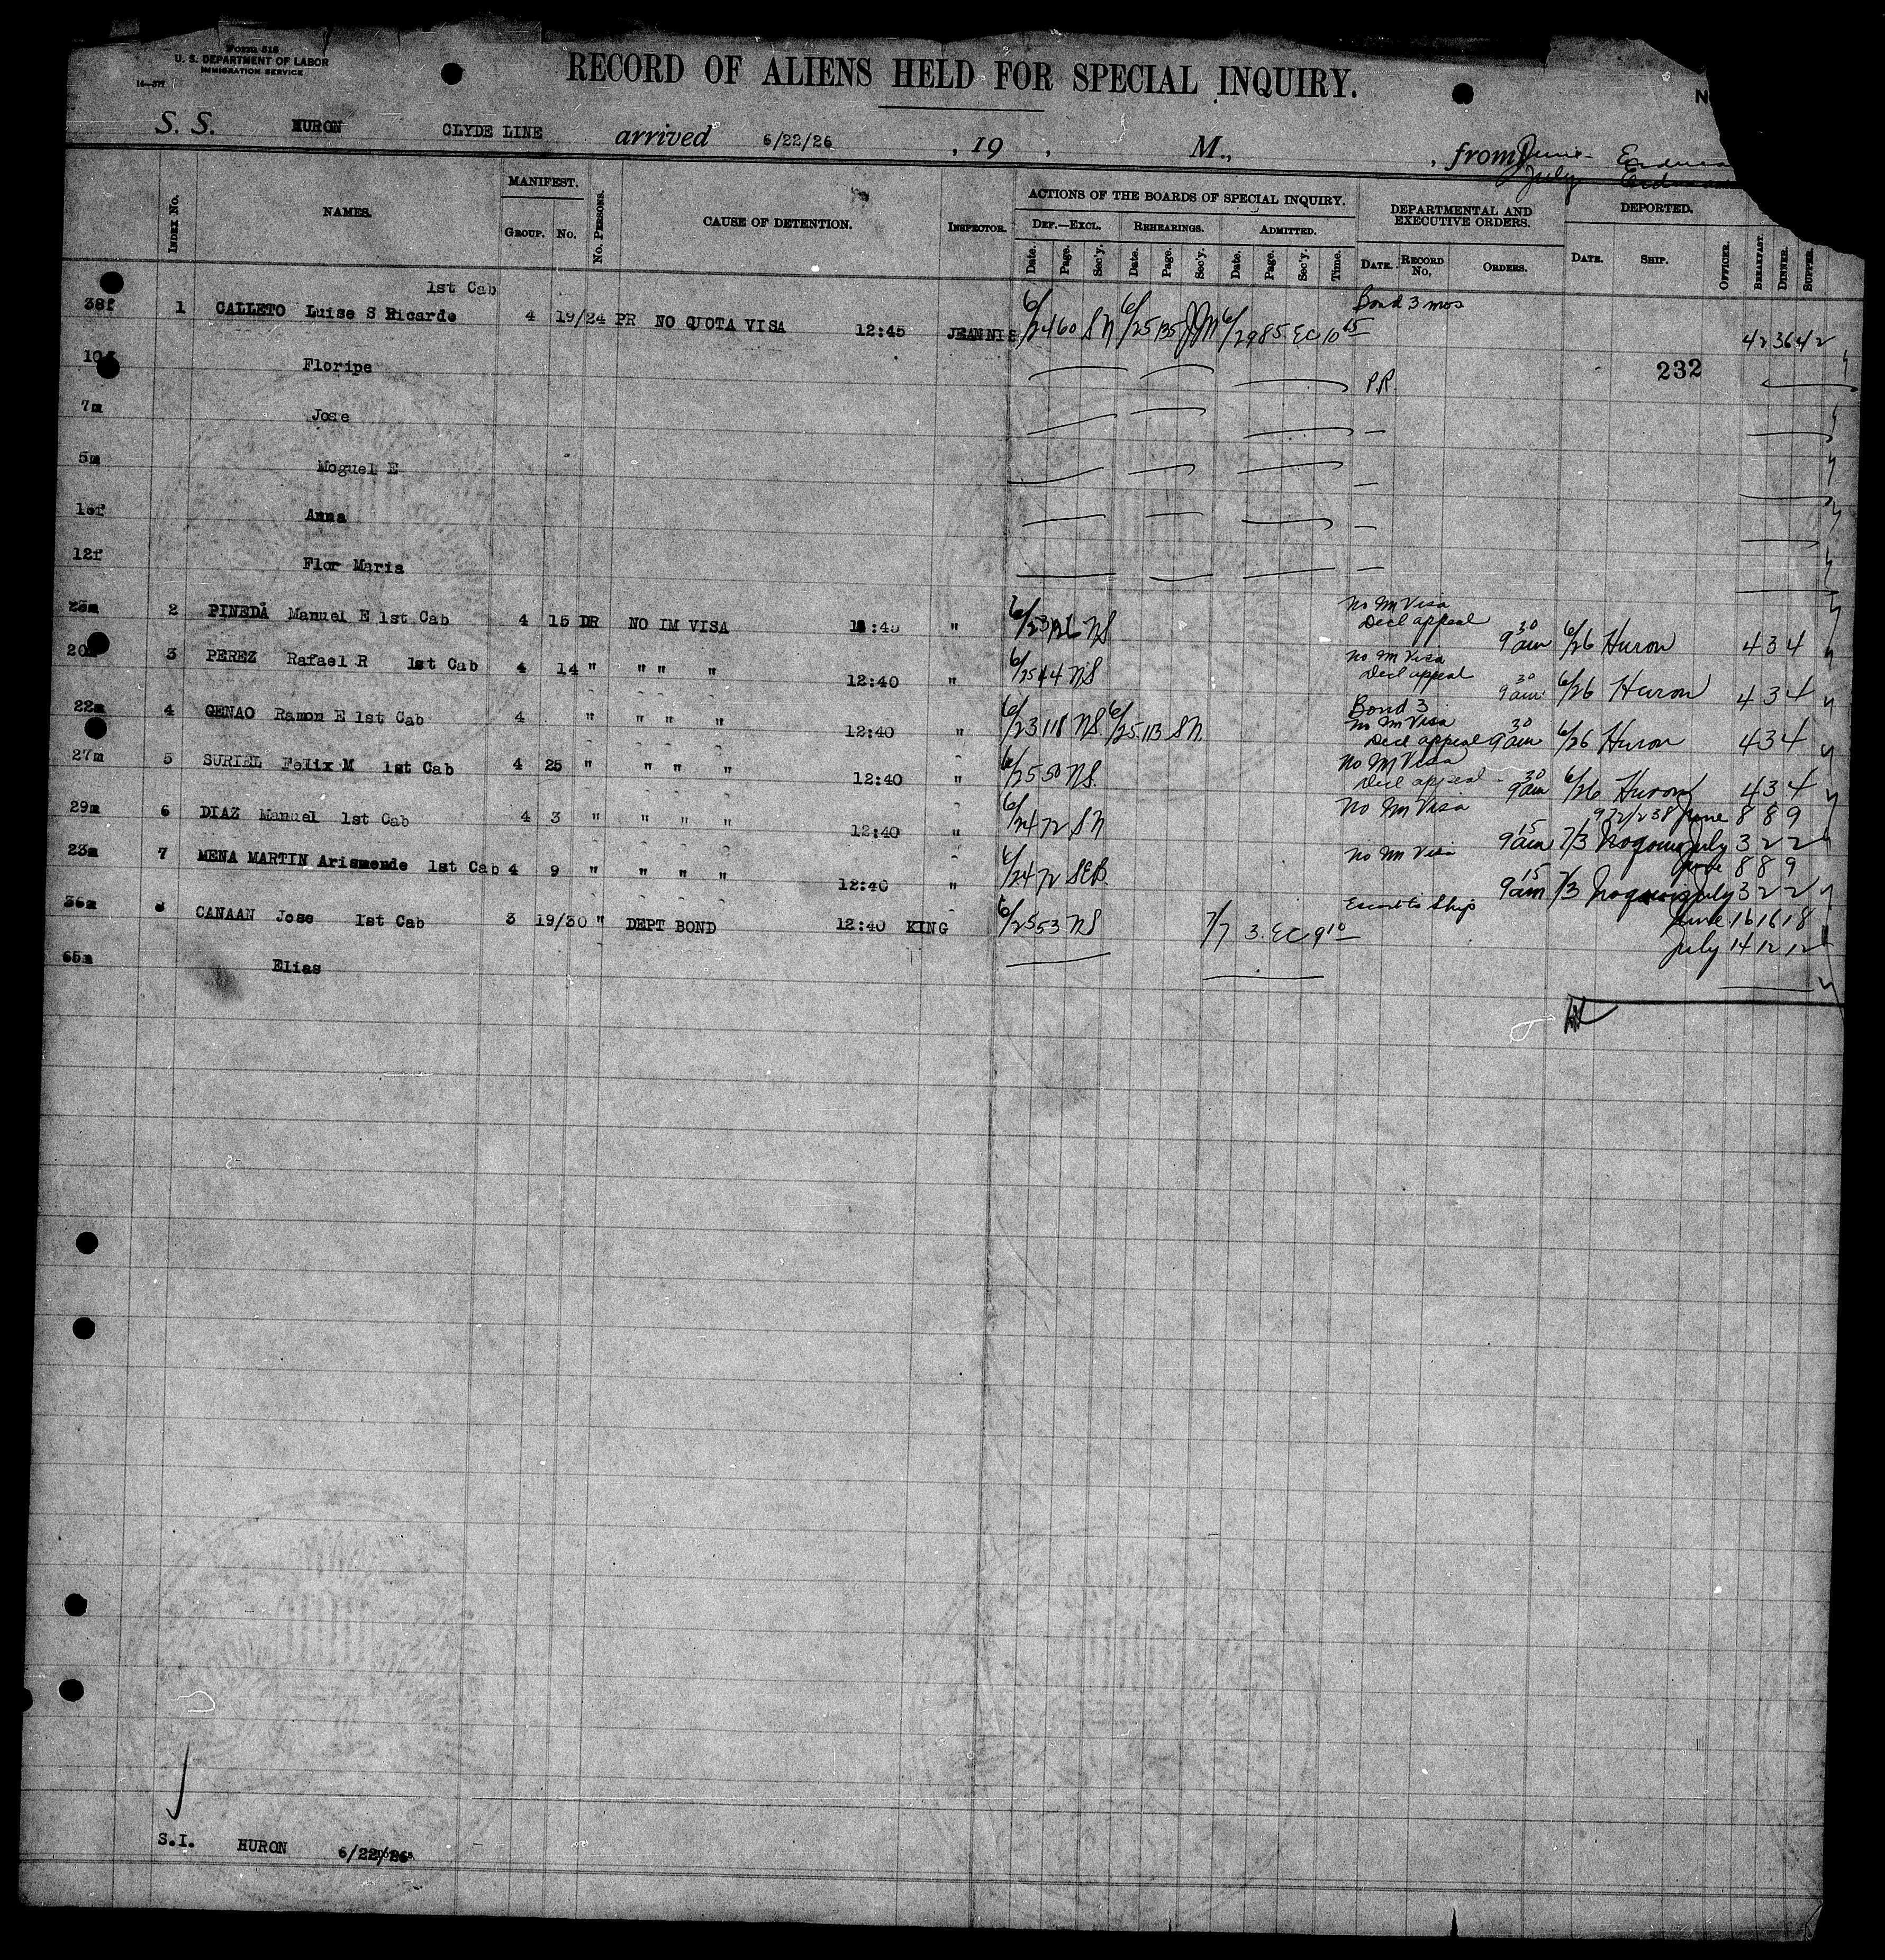 Form 518
U. S. DEPARTMENT OF LABOR
IMMIGRATION SERVICE
14—577
RECORD OF ALIENS HELD FOR SPECIAL INQUIRY.
S. S. HURON CLYDE LINE arrived 6/22/26 , 19 , M., , from June
July
INDEX No. NAMES. MANIFEST. GROUP. No. No. PERSONS. CAUSE OF DETENTION. INSPECTOR. ACTIONS OF THE BOARDS OF SPECIAL INQUIRY. DEPARTMENTAL AND EXECUTIVE ORDERS. DEPORTED.
DEF.—EXCL. REHEARINGS. ADMITTED.
Date. Page. Sec'y. Date. Page. Sec'y. Date. Page. Sec'y. Time. DATE. RECORD No. ORDERS. DATE. SHIP. OFFICER. BREAKFAST. DINNER. SUPPER.
1st Cab Bond 3 mos
38f 1 CALLETO Luise S Ricardo 4 19/24 PR NO QUOTA VISA 12:45 JEANNIS 6/24 60 SN 6/25 135 6/29 85 EC 10 15 42 36 42
Floripe PR 232
7m Jose
5m Moguel E
Anna
12f Flor Maria
No Im Visa
2 PINEDA Manuel E 1st Cab 4 15 DR NO IM VISA " 6/23 NS Decl appeal 9 30 am 6/26 Huron 4 3 4
No Im Visa
3 PEREZ Rafael R 1st Cab 4 14 " " " " 12:40 " 6/25 44 NS Decl appeal 9 30 am 6/26 Huron 4 3 4
Bond 3
No Im Visa
22m 4 GENAO Ramon E 1st Cab 4 " " " " 12:40 " 6/23 118 NS 6/25 113 SN Decl appeal 9 30 am 6/26 Huron 4 3 4
No Im Visa
27m 5 SURIEL Felix M 1st Cab 4 25 " " " " 12:40 " 6/25 50 NS Decl appeal 9 30 am 6/26 Huron 4 3 4
29m 6 DIAZ Manuel 1st Cab 4 3 " " " " 12:40 " 6/24 72 SN No Im Visa June 8 8 9
9 15 am 7/3 July 3 2 2
23m 7 MENA MARTIN Arismende 1st Cab 4 9 " " " " 12:40 " 6/24 72 SEB No Im Visa June 8 8 9
9 15 am 7/3 July 3 2 2
36m 8 CANAAN Jose 1st Cab 3 19/30 " DEPT BOND 12:40 KING 6/25 53 NS 7/7 3 EC 9 10 Escort to Ship June 16 16 18
July 14 12 12
65m Elias
S.I. HURON 6/22/26